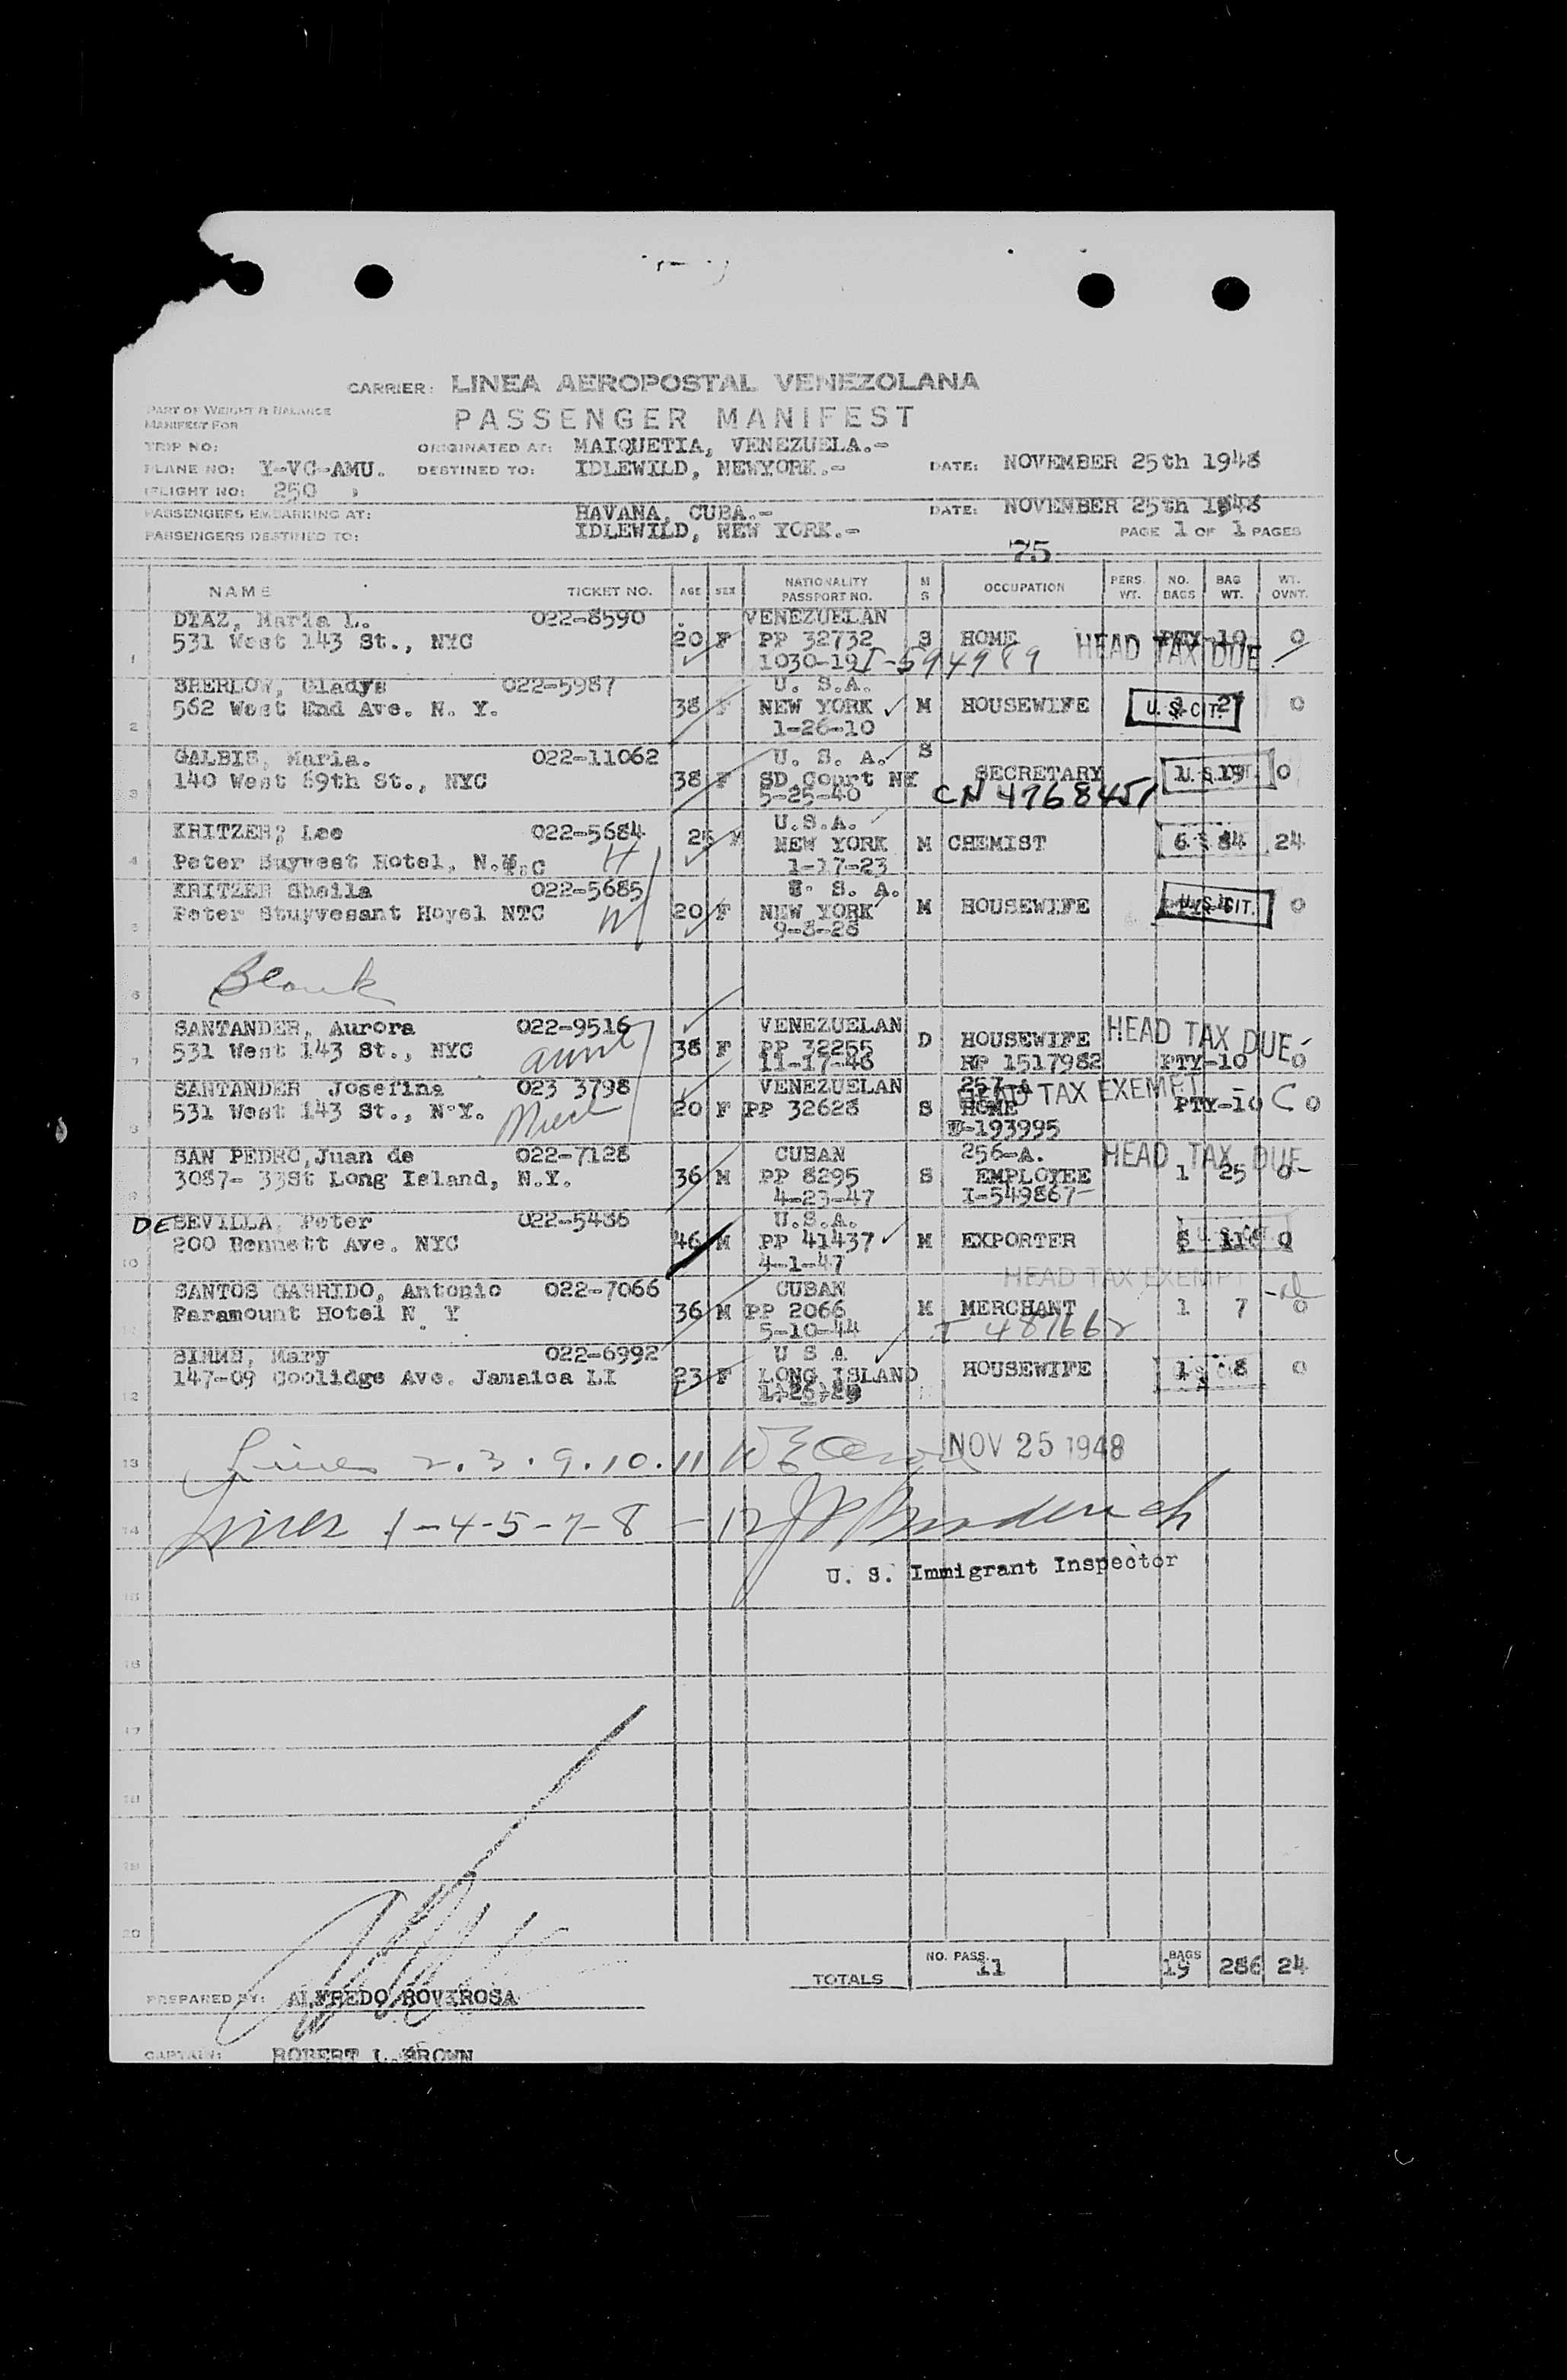 CARRIER: LINEA AEROPOSTAL VENEZOLANA
PART OF WEIGHT & BALANCE
MANIFEST FOR
PASSENGER MANIFEST
TRIP NO:
ORIGINATED AT: MAIQUETIA, VENEZUELA.-
PLANE NO: Y-VC-AMU. DESTINED TO: IDLEWILD, NEWYORK.- DATE: NOVEMBER 25th 1948
FLIGHT NO: 250
PASSENGERS EMBARKING AT: HAVANA, CUBA.- DATE: NOVEMBER 25th 1948
PASSENGERS DESTINED TO: IDLEWILD, NEW YORK.- PAGE 1 OF 1 PAGES
75
NAME TICKET NO. AGE SEX NATIONALITY PASSPORT NO. M S OCCUPATION PERS. WT. NO. BAGS BAG WT. WT. OVNT.
DIAZ, Maria L. 022-8590 VENEZUELAN
531 West 143 St., NYC 20 F PP 32732 S HOME PTY-10 0
HEAD TAX DUE
1 1030-19 I-594989
SHERLOW, Gladys 022-5987 U. S.A.
562 West End Ave. N. Y. 38 F NEW YORK M HOUSEWIFE U. S. CIT. 27 0
2 1-26-10
GALBIS, Maria. 022-11062 U. S. A. S
140 West 89th St., NYC 38 F SD.Court NY SECRETARY 1 19 0
3 5-25-40 CN 4768451
KRITZER, Lee 022-5684 U.S.A.
25 M NEW YORK M CHEMIST 6 84 24
4 Peter Suywest Hotel, N.Y.C H 1-17-23
KRITZER Sheila 022-5685 U. S. A.
Peter Stuyvesant Hoyel NTC W 20 F NEW YORK M HOUSEWIFE U.S.CIT. 0
5 9-8-28
6 Blank
SANTANDER, Aurora 022-9516 VENEZUELAN HEAD TAX DUE
531 West 143 St., NYC aunt 38 F PP 32255 D HOUSEWIFE
7 11-17-48 RP 1517982 PTY-10 0
SANTANDER Josefina 023 3798 VENEZUELAN 257-A HEAD TAX EXEMPT
531 West 143 St., N.Y. Niece 20 F PP 32628 S HOME PTY-10 C 0
8 U-193995
SAN PEDRO,Juan de 022-7128 CUBAN 256-A. HEAD TAX DUE
3087- 33St Long Island, N.Y. 36 M PP 8295 S EMPLOYEE 1 25 0-
9 4-23-47 I-549867-
DE SEVILLA, Peter 022-5486 U.S.A.
200 Bennett Ave. NYC 46 M PP 41437 M EXPORTER 0
10 4-1-47
HEAD TAX EXEMPT
SANTOS GARRIDO, Antonio 022-7066 CUBAN
Paramount Hotel N. Y 36 M PP 2066 M MERCHANT 1 7 0
5-10-44 I 487662
022-6992 U S A
147-09 Coolidge Ave. Jamaica LI 23 F LONG ISLAND HOUSEWIFE 1 8 0
12
13 Lines 2.3.9.10.11 NOV 25 1948
14 Lines 1-4-5-7-8-12
15 U. S. Immigrant Inspector
16
17
18
19
20
TOTALS NO. PASS. 11 BAGS 19 286 24
PREPARED BY: ALFREDO ROVIROSA
CAPTAIN: ROBERT L. BROWN